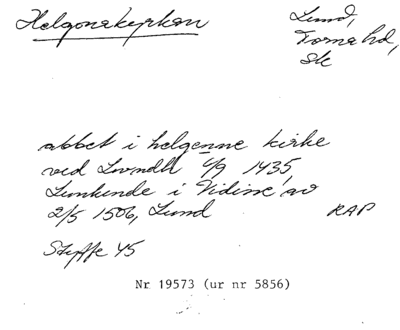 Helgonakyrkan
Lund,
Torna hd,
Sk
abbet i helgenne kirke
ved Lundh 4/9 1435,
i Vidisse av
2/5 1506, Lund
RAP
Styffe 45
Nr 19573 (ur nr 5856)